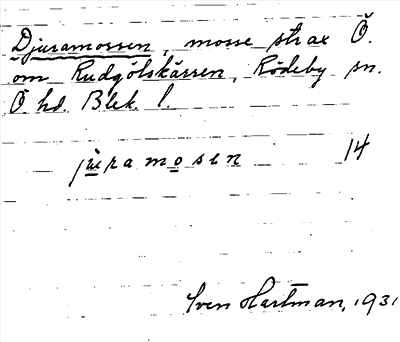 Djuramossen, mosse strax Ö.
om Rudgölskärren, Rödeby sn.
Ö hd. Blek. l.
jùramosen 14
Sven Hartman, 1931